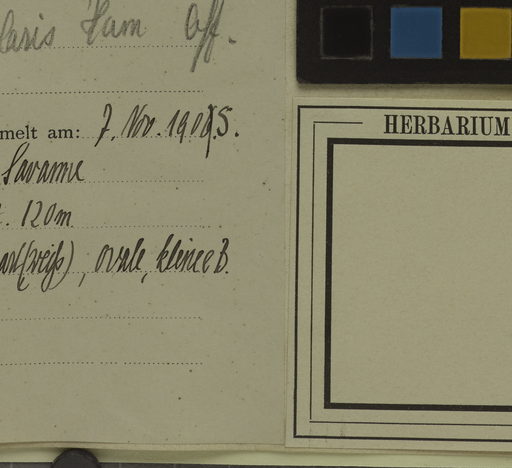 laris Ham Off.
melt am: 7. Nov. 190 5.
Savanne
120 m
(weiß), ovale, kleine B.
HERBARIUM